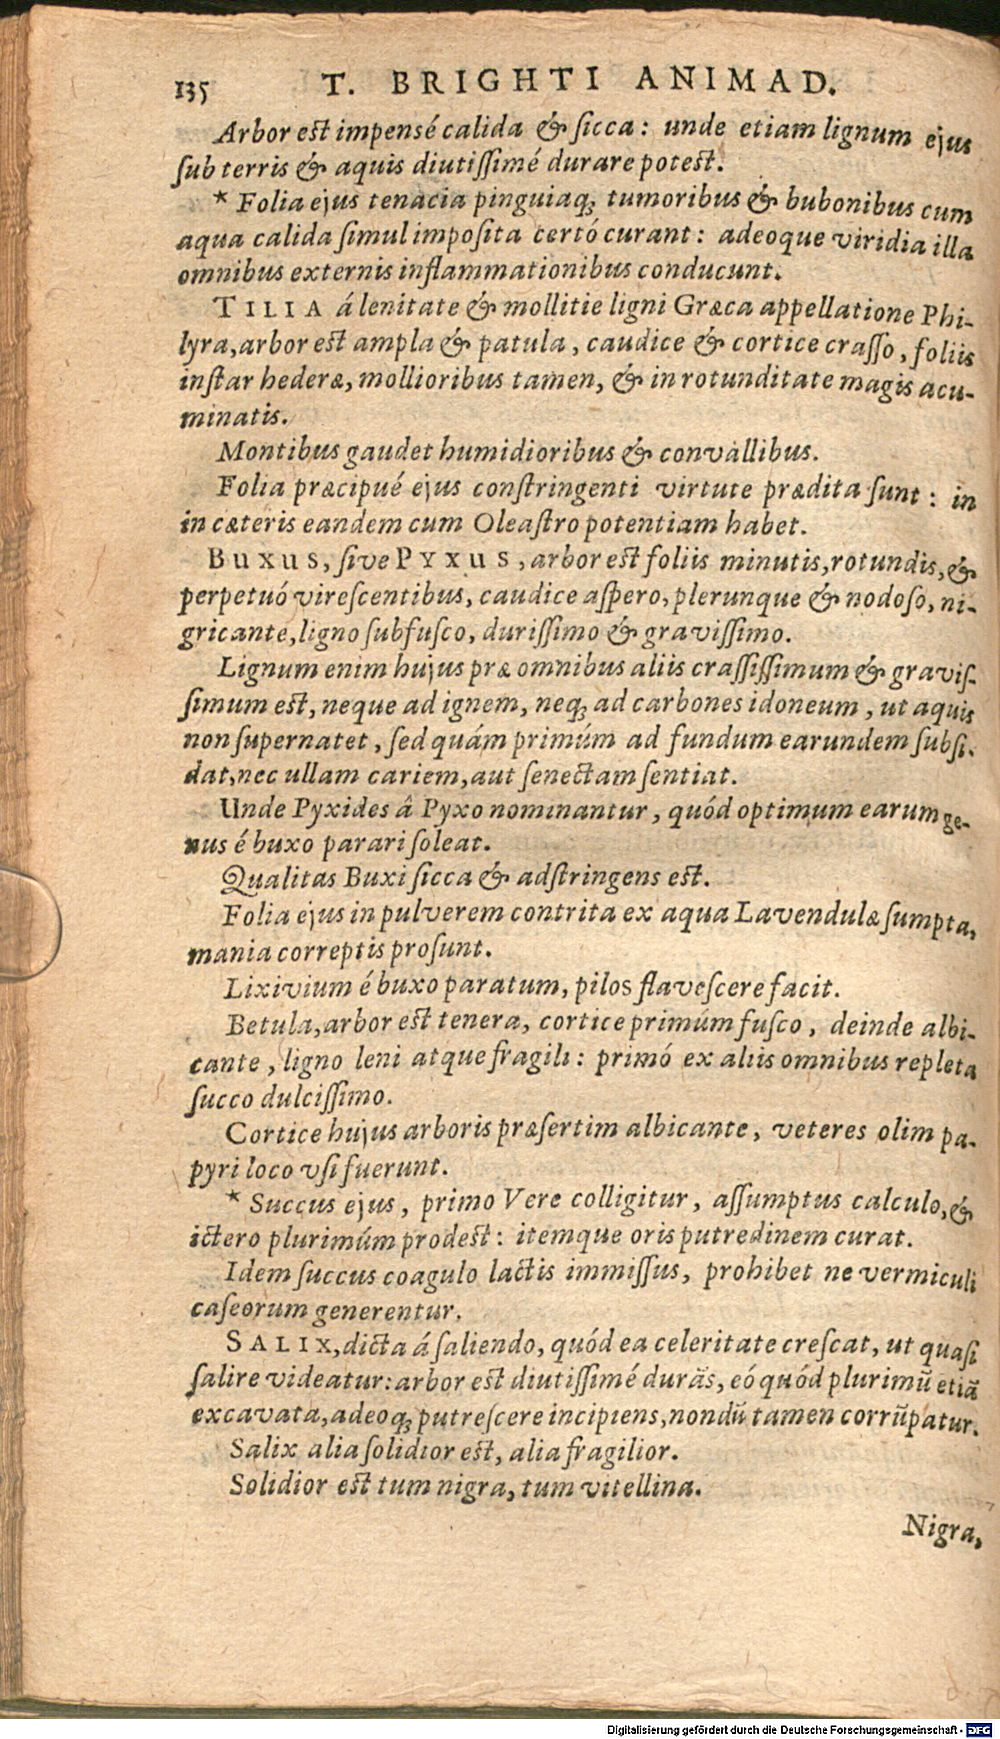 135 T. BRIGHTI ANIMAD.
Arbor est impensé calida & sicca: unde etiam lignum ejus
sub terris & aquis diutissimé durare potest.
* Folia ejus tenacia pinguiaq; tumoribus & bubonibus cum
aqua calida simul imposita certó curant: adeoque viridia illa
omnibus externis inflammationibus conducunt.
TILIA á lenitate & mollitie ligni Græca appellatione Phi-
lyra, arbor est ampla & patula, caudice & cortice crasso, foliis
instar hederæ, mollioribus tamen, & in rotunditate magis acu-
minatis.
Montibus gaudet humidioribus & convallibus.
Folia præcipué ejus constringenti virtute prædita sunt: in
in cæteris eandem cum Oleastro potentiam habet.
BUXUS, sive PYXUS, arbor est foliis minutis, rotundis, &
perpetuó virescentibus, caudice aspero, plerunque & nodoso, ni-
gricante, ligno subfusco, durissimo & gravissimo.
Lignum enim hujus præ omnibus aliis crassissimum & gravis-
simum est, neque ad ignem, neq; ad carbones idoneum, ut aquis
non supernatet, sed quám primúm ad fundum earundem subsi-
dat, nec ullam cariem, aut senectam sentiat.
Unde Pyxides â Pyxo nominantur, quód optimum earum ge-
nus é buxo parari soleat.
Qualitas Buxi sicca & adstringens est.
Folia ejus in pulverem contrita ex aqua Lavendulæ sumpta,
mania correptis prosunt.
Lixivium é buxo paratum, pilos flavescere facit.
Betula, arbor est tenera, cortice primúm fusco, deinde albi-
cante, ligno leni atque fragili: primó ex aliis omnibus repleta
succo dulcissimo.
Cortice hujus arboris præsertim albicante, veteres olim pa-
pyri loco vsi fuerunt.
* Succus ejus, primo Vere colligitur, assumptus calculo, &
ictero plurimúm prodest: itemque oris putredinem curat.
Idem succus coagulo lactis immissus, prohibet ne vermiculi
caseorum generentur.
SALIX, dicta á saliendo, quód ea celeritate crescat, ut quasi
salire videatur: arbor est diutissimé durãs, eó quód plurimũ etiã
excavata, adeoq; putrescere incipiens, nondũ tamen corrũpatur.
Salix alia solidior est, alia fragilior.
Solidior est tum nigra, tum vitellina.
Nigra,
Digitalisierung gefördert durch die Deutsche Forschungsgemeinschaft - DFG